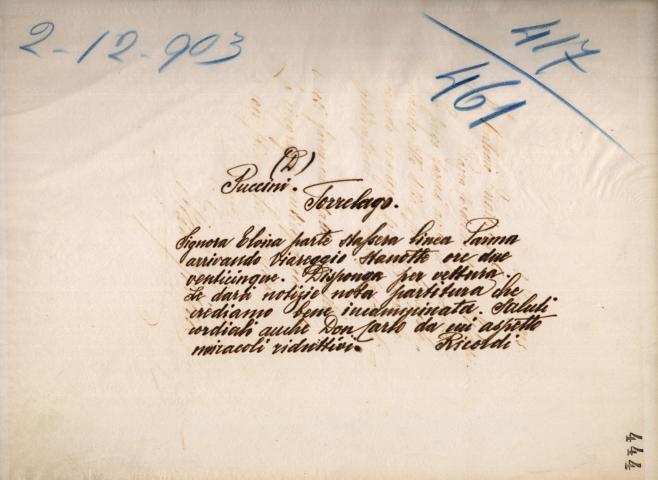 2-12-903
417
461
(D)
Puccini. Torrelago.
Signora Elvira parte stassera linea Parma
arrivando Viareggio stanotte ore due
venticinque. Disponga per vettura.
Le darà notizie nota partitura che
crediamo bene incamminata. Saluti
cordiali anche Don Carlo da cui aspetto
miracoli riduttivi. Ricordi
444